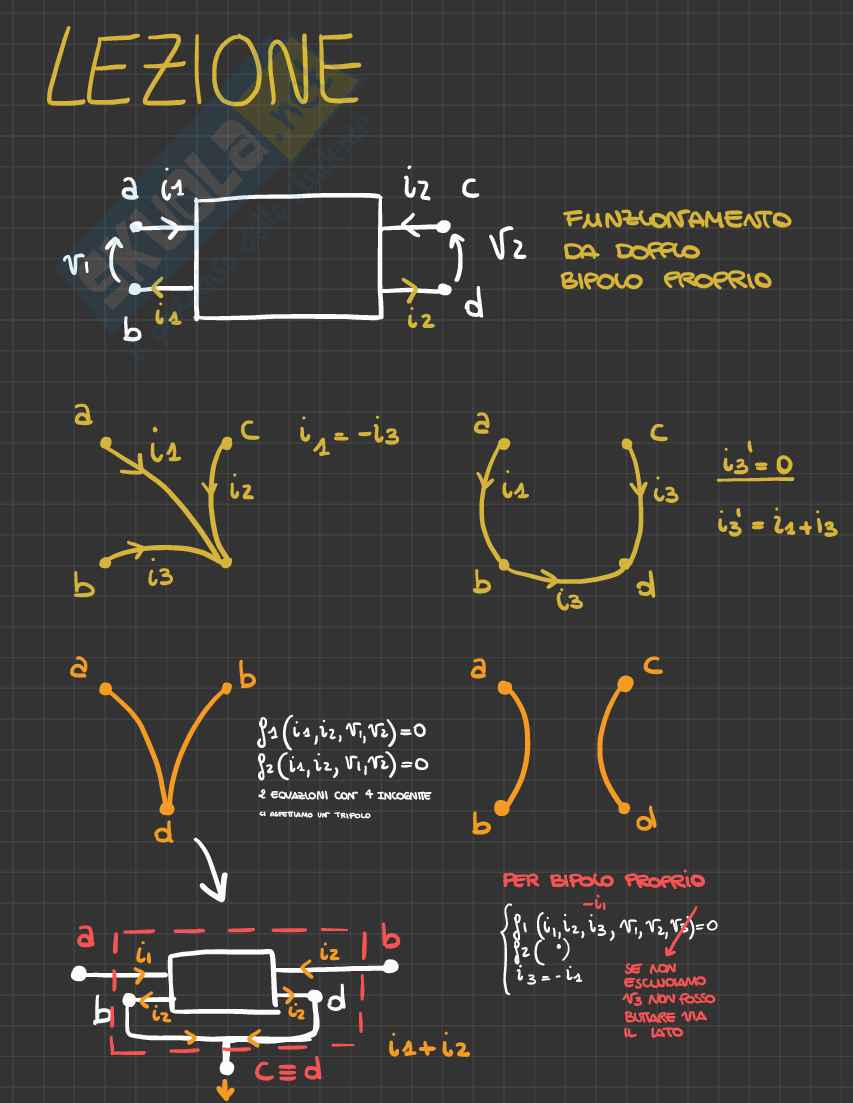 LEZIONE
SKUOLA.net
a i1 i2 c
V1 V2
b i1 i2 d
FUNZIONAMENTO
DA DOPPIO
BIPOLO PROPRIO
a c i1 = -i3
i1 i2
b i3
a c
i1 i3
b i3 d
i3' = 0
i3' = i1 + i3
a b
d
f1 (i1, i2, V1, V2) = 0
f2 (i1, i2, V1, V2) = 0
2 EQUAZIONI CON 4 INCOGNITE
CI ASPETTIAMO UN TRIPOLO
a c
b d
PER BIPOLO PROPRIO
-i1
f1 (i1, i2, i3, V1, V2, V3) = 0
f2 ( · )
i3 = -i1
SE NON
ESCLUDIAMO
V3 NON POSSO
BUTTARE VIA
IL LATO
a i1 i2 b
b i2 i2 d
c ≡ d
i1 + i2